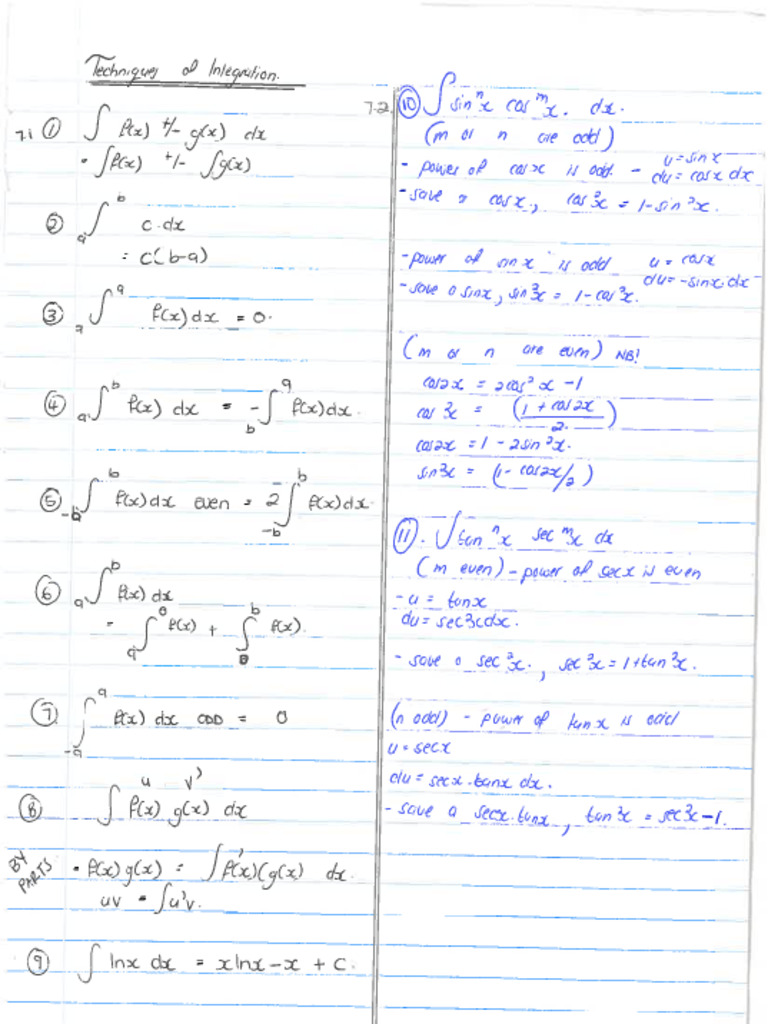 Techniques of Integration.
7.1 ① ∫ f(x) +/- g(x) dx
• ∫f(x) +/- ∫g(x)
② a∫b c.dx
: c(b-a)
③ a∫a f(x)dx = 0.
④ a∫b f(x) dx = - b∫a f(x)dx.
⑤ -b∫b f(x)dx even = 2 -b∫b f(x)dx.
⑥ a∫b f(x)dx
= a∫0 f(x) + 0∫b f(x).
⑦ -a∫a f(x) dx ODD = 0
u v'
⑧ ∫ f(x) g(x) dx
BY PARTS • f(x)g(x) = ∫f'(x)(g(x) dx.
uv = ∫u'v.
⑨ ∫ lnx dx = xlnx - x + c.
7.2 ⑩ ∫ sinⁿx cosᵐx. dx.
(m or n are odd)
- power of cosx is odd. - u = sinx
du = cosx dx
- save a cosx, cos²x = 1-sin²x.
- power of sinx is odd u = cosx
du = -sinx.dx
- save a sinx, sin²x = 1-cos²x.
(m or n are even) NB!
cos2x = 2cos²x -1
cos²x = (1 + cos2x/2.)
cos2x = 1 - 2sin²x.
sin²x = (1-cos2x/2)
⑪. ∫tanⁿx secᵐx dx
(m even) - power of secx is even
- u = tanx
du = sec²xdx.
- save a sec²x., sec²x = 1+tan²x.
(n odd) - power of tanx is odd
u = secx
du = secx.tanx dx.
- save a secx.tanx, tan²x = sec²x-1.